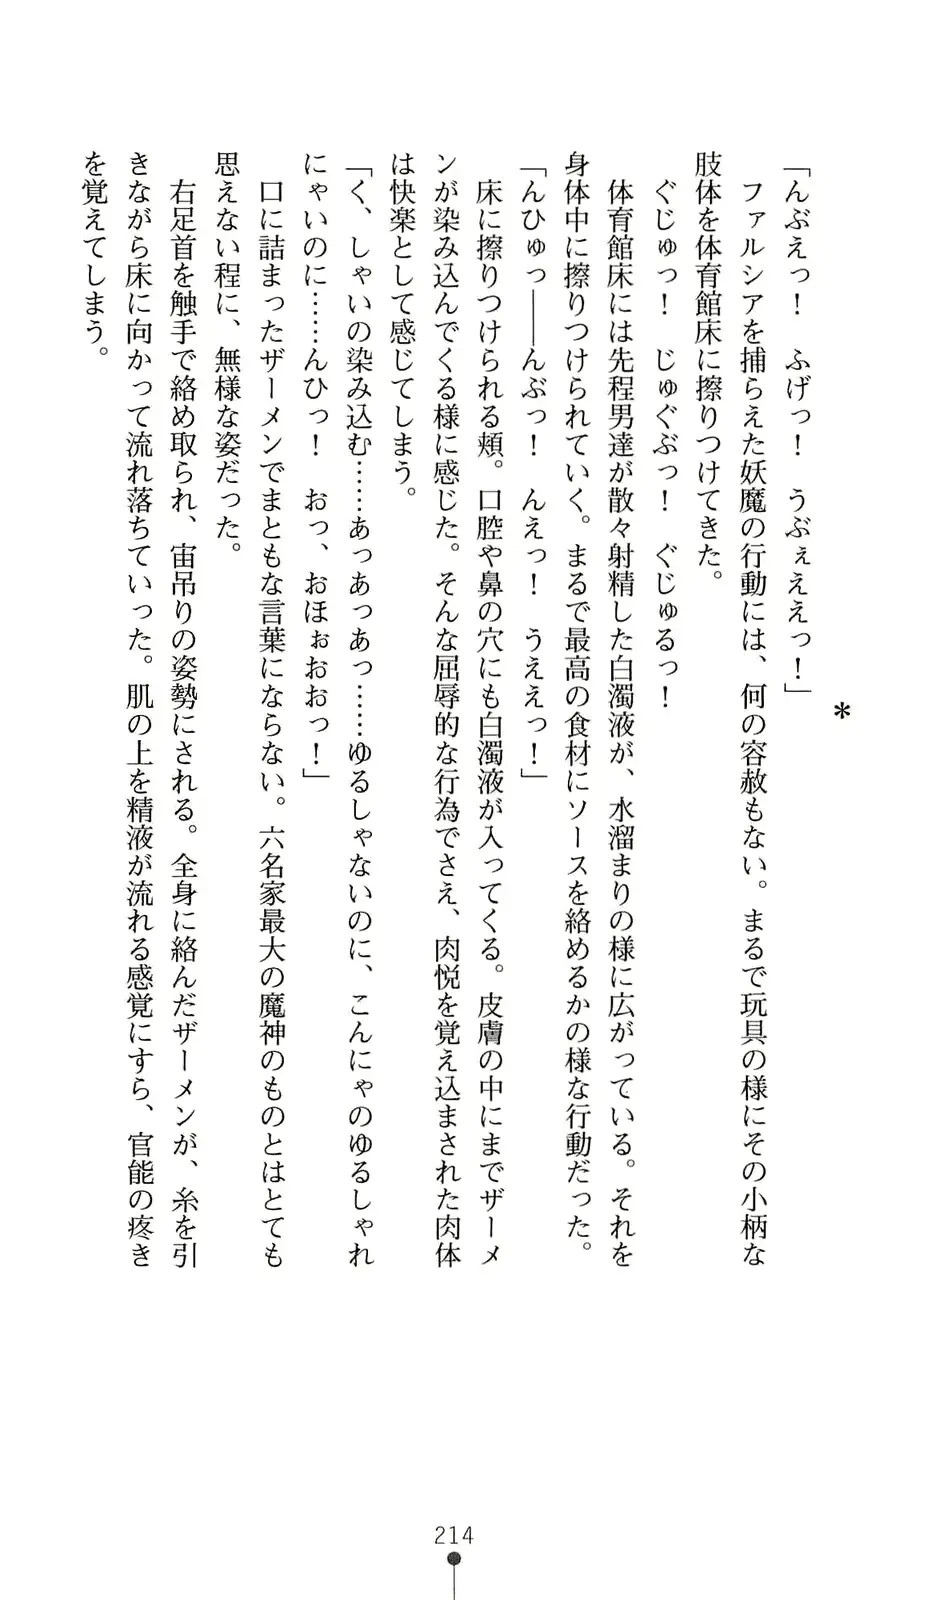 ＊
「んぶえっ！　ふげっ！　うぶぇええっ！」
　ファルシアを捕らえた妖魔の行動には、何の容赦もない。まるで玩具の様にその小柄な
肢体を体育館床に擦りつけてきた。
　ぐじゅっ！　じゅぐぶっ！　ぐじゅるっ！
　体育館床には先程男達が散々射精した白濁液が、水溜まりの様に広がっている。それを
身体中に擦りつけられていく。まるで最高の食材にソースを絡めるかの様な行動だった。
「んひゅっ――んぶっ！　んえっ！　うええっ！」
　床に擦りつけられる頬。口腔や鼻の穴にも白濁液が入ってくる。皮膚の中にまでザーメ
ンが染み込んでくる様に感じた。そんな屈辱的な行為でさえ、肉悦を覚え込まされた肉体
は快楽として感じてしまう。
「く、しゃいの染み込む……あっあっあっ……ゆるしゃないのに、こんにゃのゆるしゃれ
にゃいのに……んひっ！　おっ、おほぉおおっ！」
　口に詰まったザーメンでまともな言葉にならない。六名家最大の魔神のものとはとても
思えない程に、無様な姿だった。
　右足首を触手で絡め取られ、宙吊りの姿勢にされる。全身に絡んだザーメンが、糸を引
きながら床に向かって流れ落ちていった。肌の上を精液が流れる感覚にすら、官能の疼き
を覚えてしまう。
214